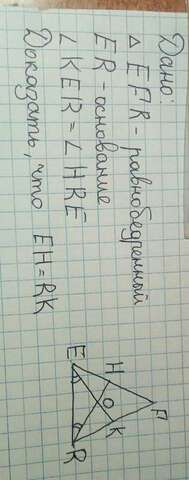 Дано:
△ EFR - равнобедренный
ER - основание
∠ KER = ∠ HRE
Доказать, что EH = RK
F
H
K
O
E
R